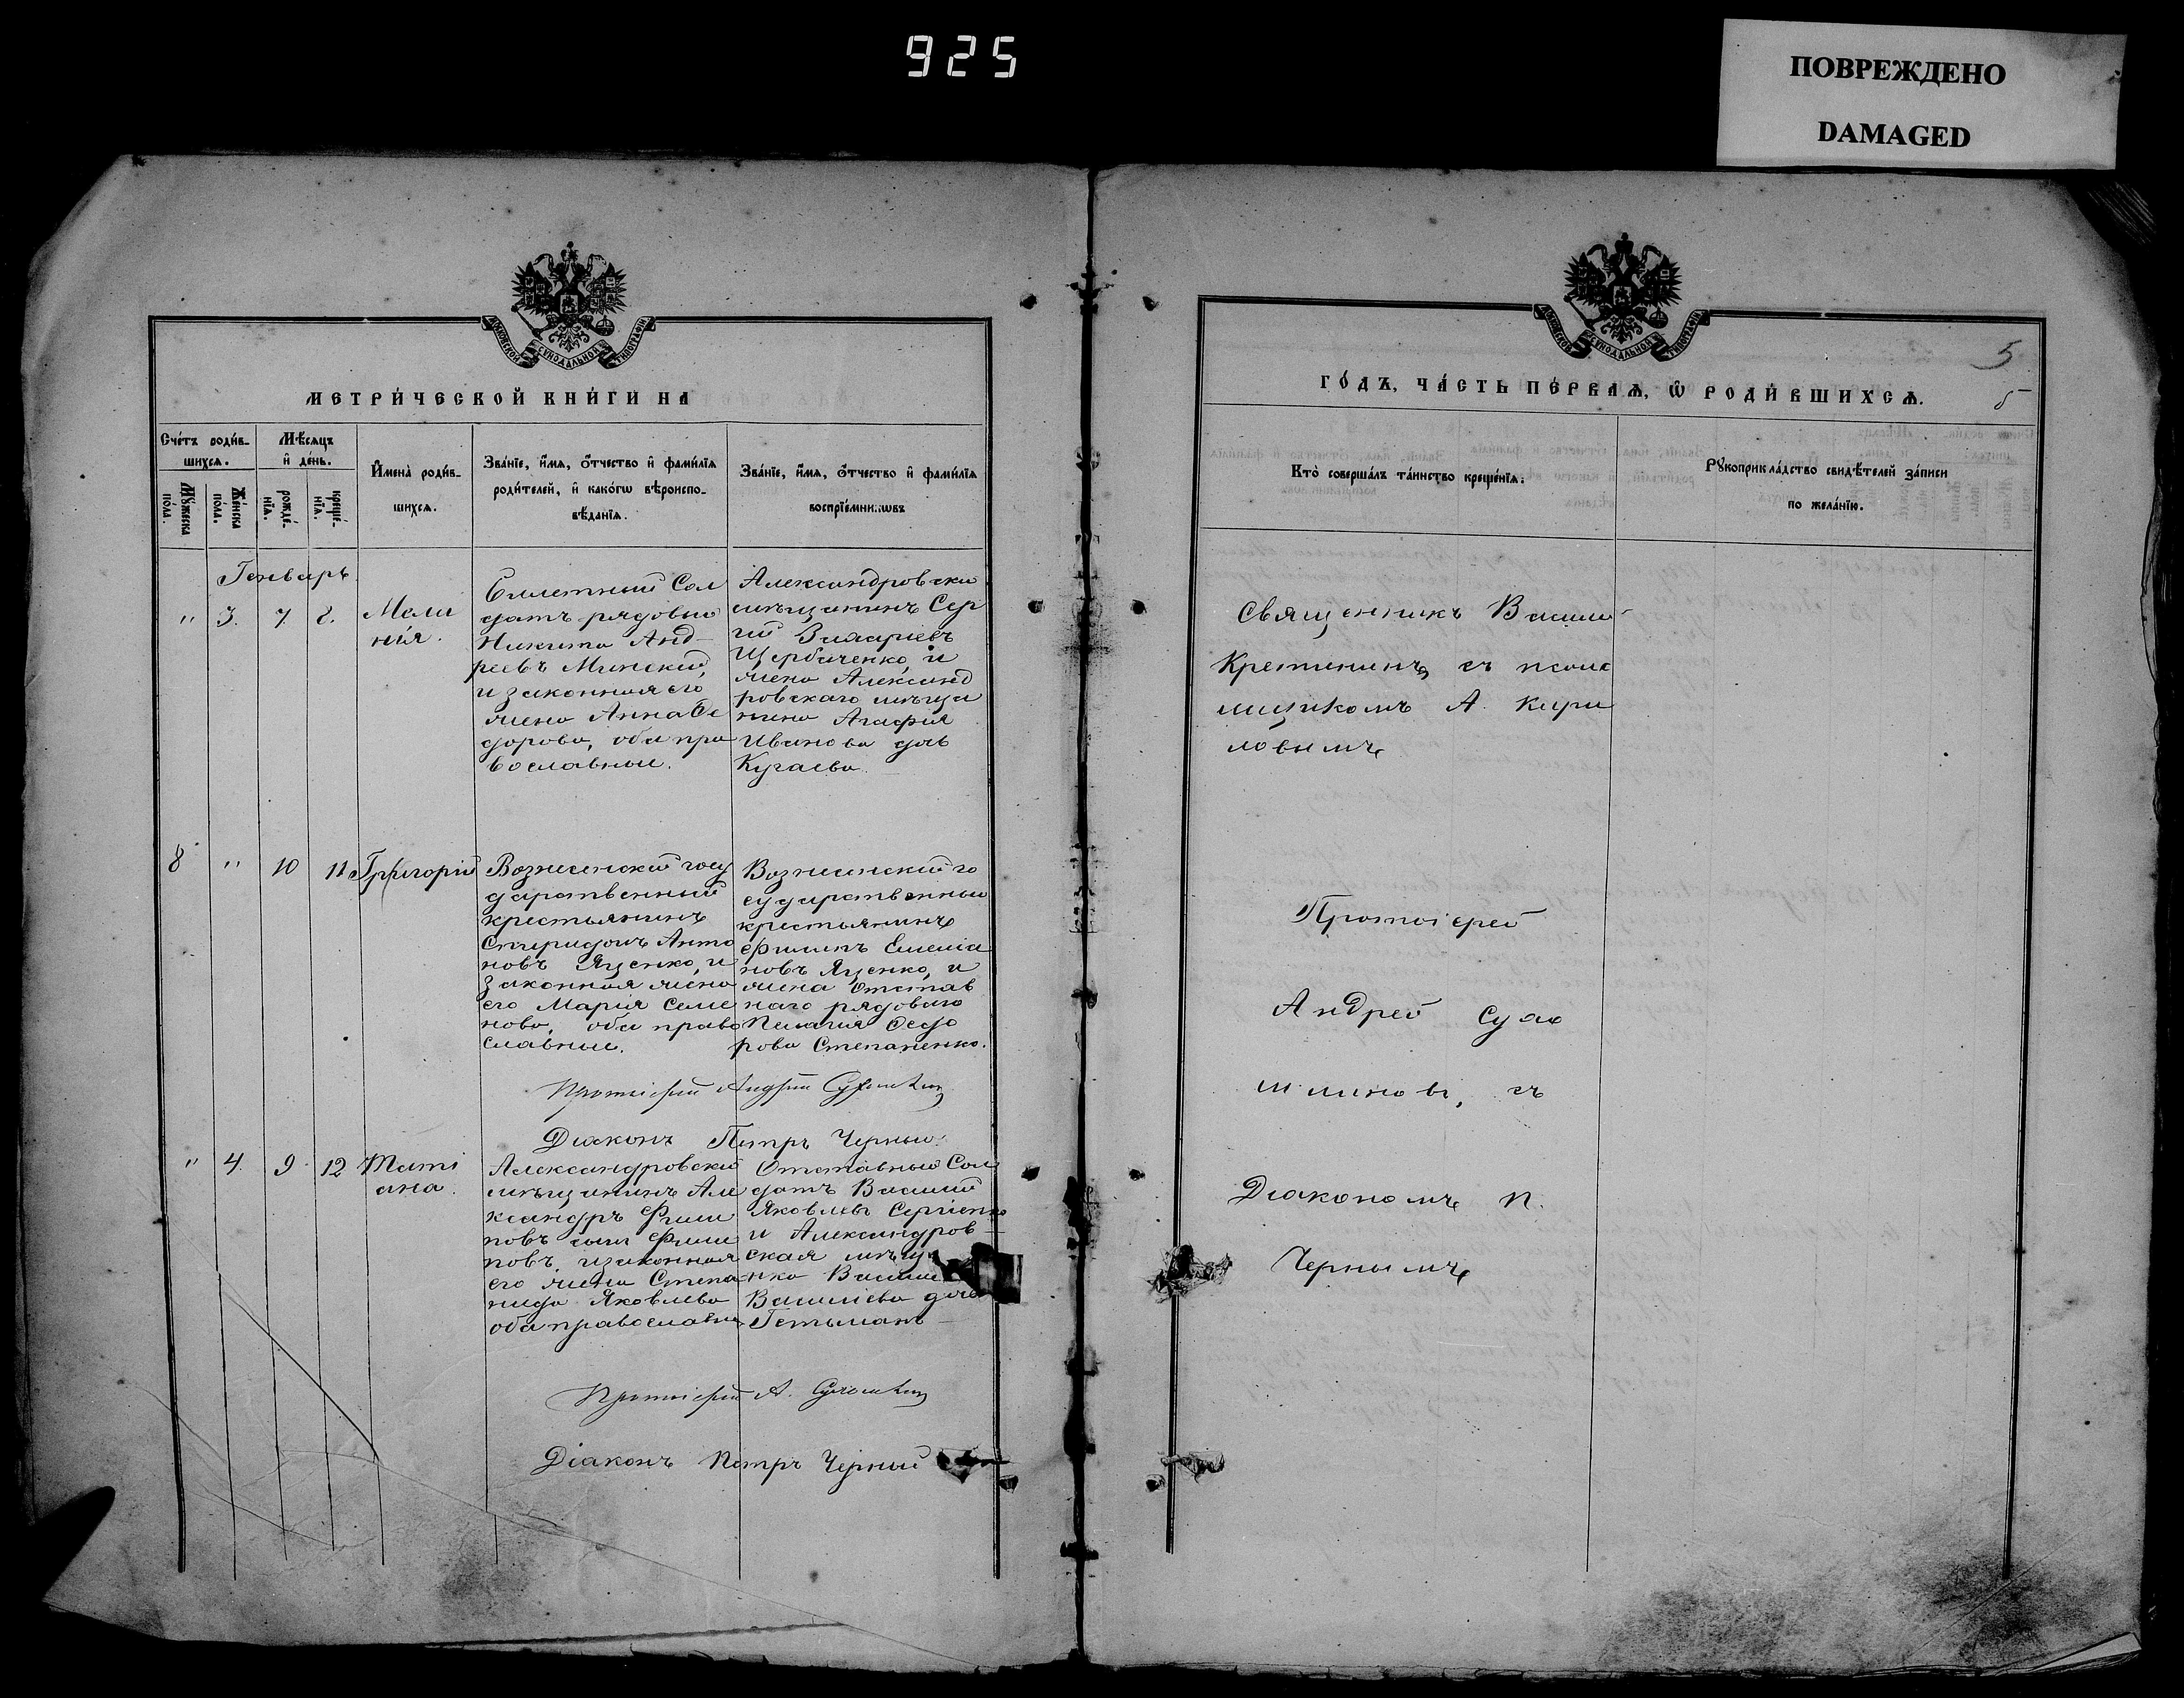 925
ПОВРЕЖДЕНО
DAMAGED
МОСКОВСКОЙ СУНОДАЛЬНОЙ ТИПОГРАФІИ
МЕТРИ́ЧЕСКОЙ КНИ́ГИ НА
Сче́тъ роди́в-
шихсѧ.
Мѣ́сяцъ
и҆ де́нь.
Мꙋ́жеска
по́ла.
Же́нска
по́ла.
рожде́-
нїѧ.
креще́-
нїѧ.
И҆мена̀ роди́в-
шихсѧ.
Зва́нїе, и҆́мѧ, ѻ҆́тчество и҆ фами́лїѧ
роди́телей, и҆ како́гѡ вѣроиспо-
вѣ́данїѧ.
Зва́нїе, и҆́мѧ, ѻ҆́тчество и҆ фами́лїѧ
воспрїе́мникѡвъ
Генварь
" 3. 7. 8. Мела
нія.
Билетный Сол
датъ рядовый
Никита Анд-
реевъ Минский,
и законная его
жена Анна Ѳе
дорова, оба пра
вославные.
Александровски
мѣщанинъ Сер
гій Захаріевъ
Щербаченко, и
жена Александ
ровскаго мѣща
нина Агафия
Иванова дочь
Кугаева.
8 " 10 11 Григорій
Вознесенский госу
дарственный
крестьянинъ
Спиридонъ Анто
новъ Яценко, и
законная жена
его Мария Семе
нова, оба право
славные.
Вознесенский го
сударственный
крестьянинъ
Филипъ Емелиа
новъ Яценко, и
жена Отстав
наго рядоваго
Пелагия Ѳедо
рова Степаненко.
Протоіерей Андрей
Діаконъ Петръ Черный.
" 4. 9 12 Тати
ана.
Александровский
мѣщанинъ Але
ксандръ Фили
повъ сынъ Фили
повъ, и законная
его жена Степа-
нида Яковлева
оба православны
Отставный Сол
датъ Василий
Яковлевъ Сергіенко
и Александров-
ская мѣщ
нка
Василіева дочь
Гетьманъ
Протоіерей А.
Діаконъ Петръ Черный
МОСКОВСКОЙ СУНОДАЛЬНОЙ ТИПОГРАФІИ
5
ГО́ДЪ, ЧА́СТЬ ПЕ́РВАѦ, Ѽ РОДИ́ВШИХСѦ.
5
Кто̀ соверша́лъ та́инство креще́нїѧ.
Рꙋкоприкла́дство свидѣ́телей за́писи
по жела́нїю.
Священникъ Васили
Кретининъ съ псалом
щикомъ А. Кири
ловымъ
Протоіерей
Андрей
съ
Діакономъ П.
Чернымъ